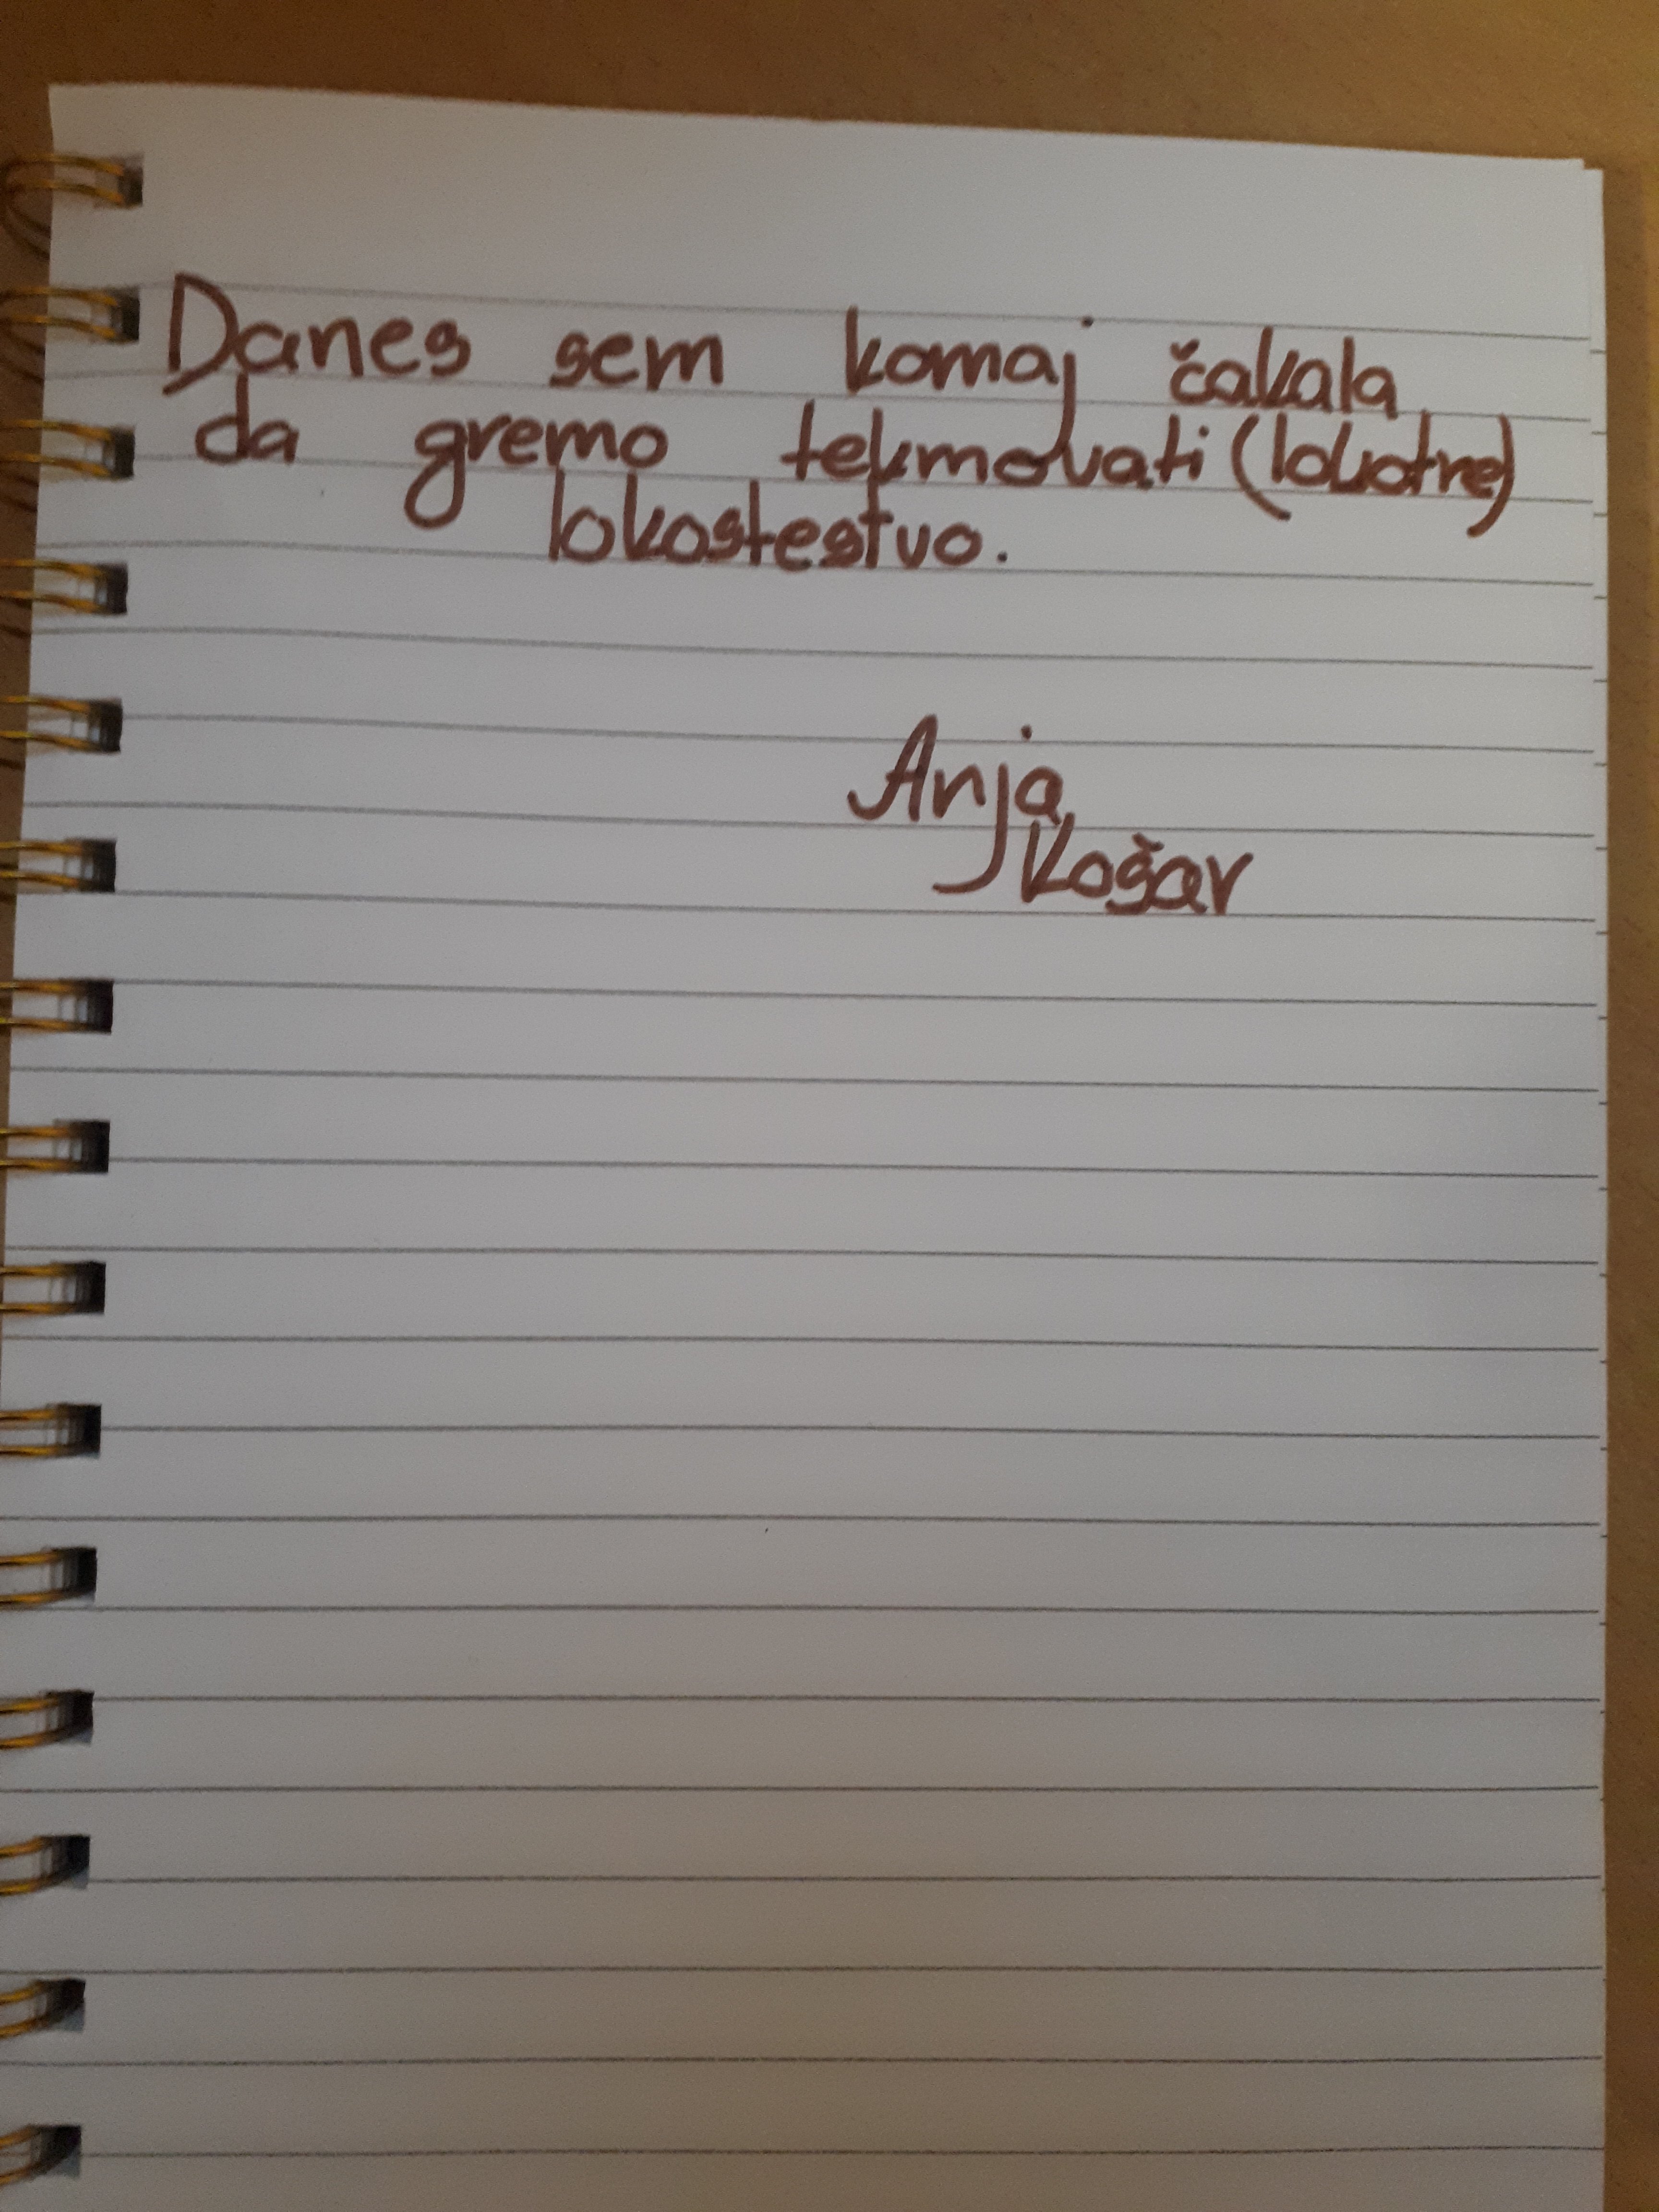 Danes sem komaj čakala,
da gremo tekmovati (lokotre)
lokostestvo.
Anja
Košar